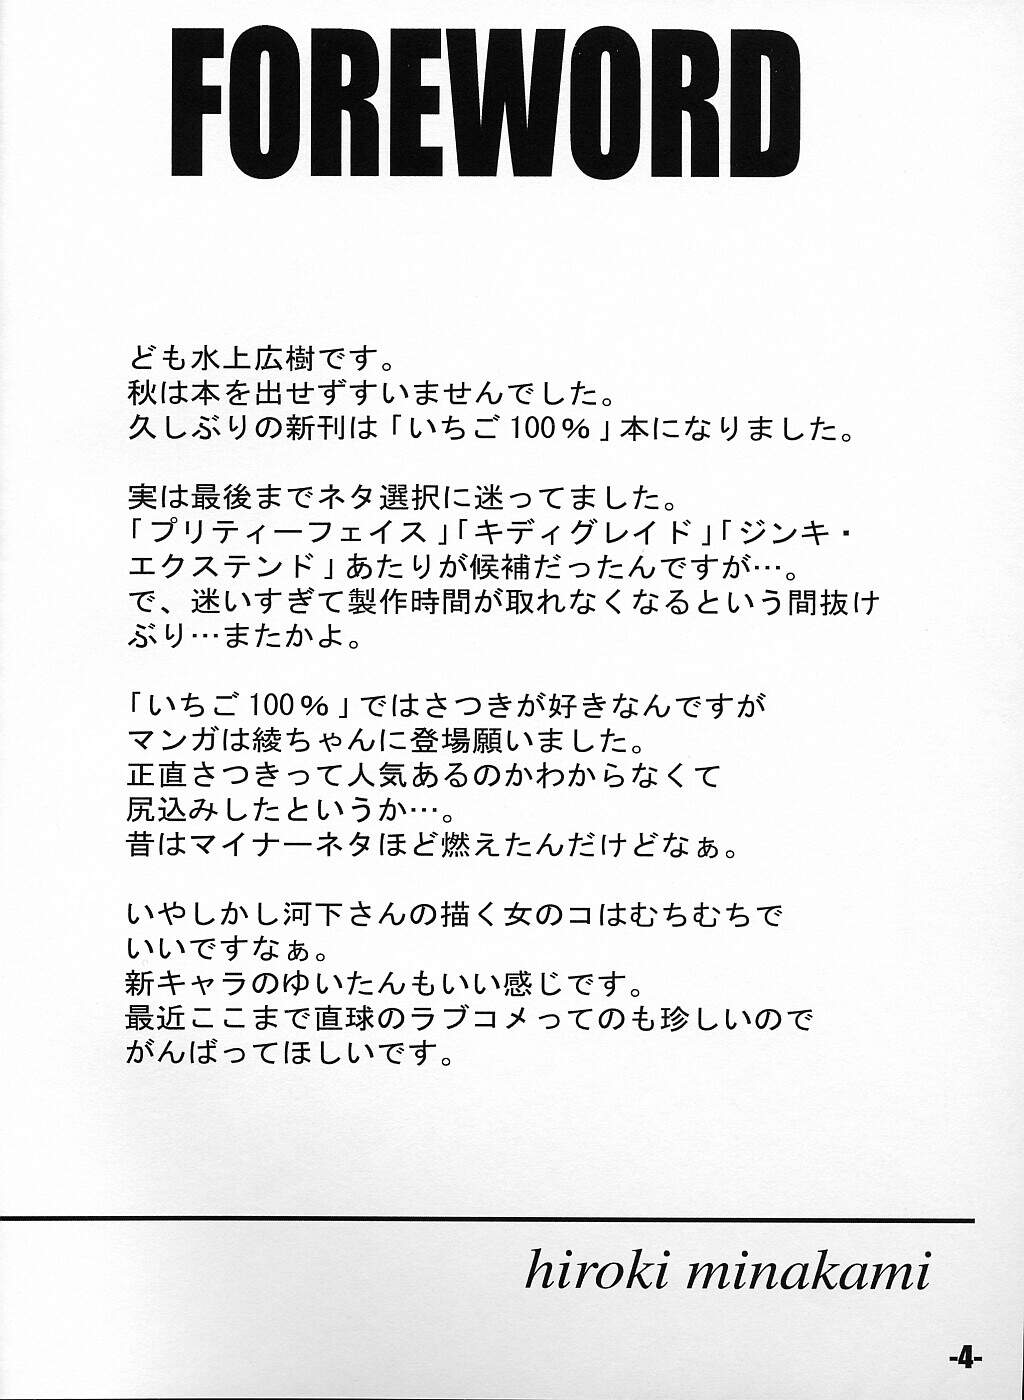 FOREWORD
ども水上広樹です。
秋は本を出せずすいませんでした。
久しぶりの新刊は「いちご100%」本になりました。
実は最後までネタ選択に迷ってました。
「プリティーフェイス」「キディグレイド」「ジンキ・
エクステンド」あたりが候補だったんですが…。
で、迷いすぎて製作時間が取れなくなるという間抜け
ぶり…またかよ。
「いちご100%」ではさつきが好きなんですが
マンガは綾ちゃんに登場願いました。
正直さつきって人気あるのかわからなくて
尻込みしたというか…。
昔はマイナーネタほど燃えたんだけどなぁ。
いやしかし河下さんの描く女のコはむちむちで
いいですなぁ。
新キャラのゆいたんもいい感じです。
最近ここまで直球のラブコメってのも珍しいので
がんばってほしいです。
hiroki minakami
-4-